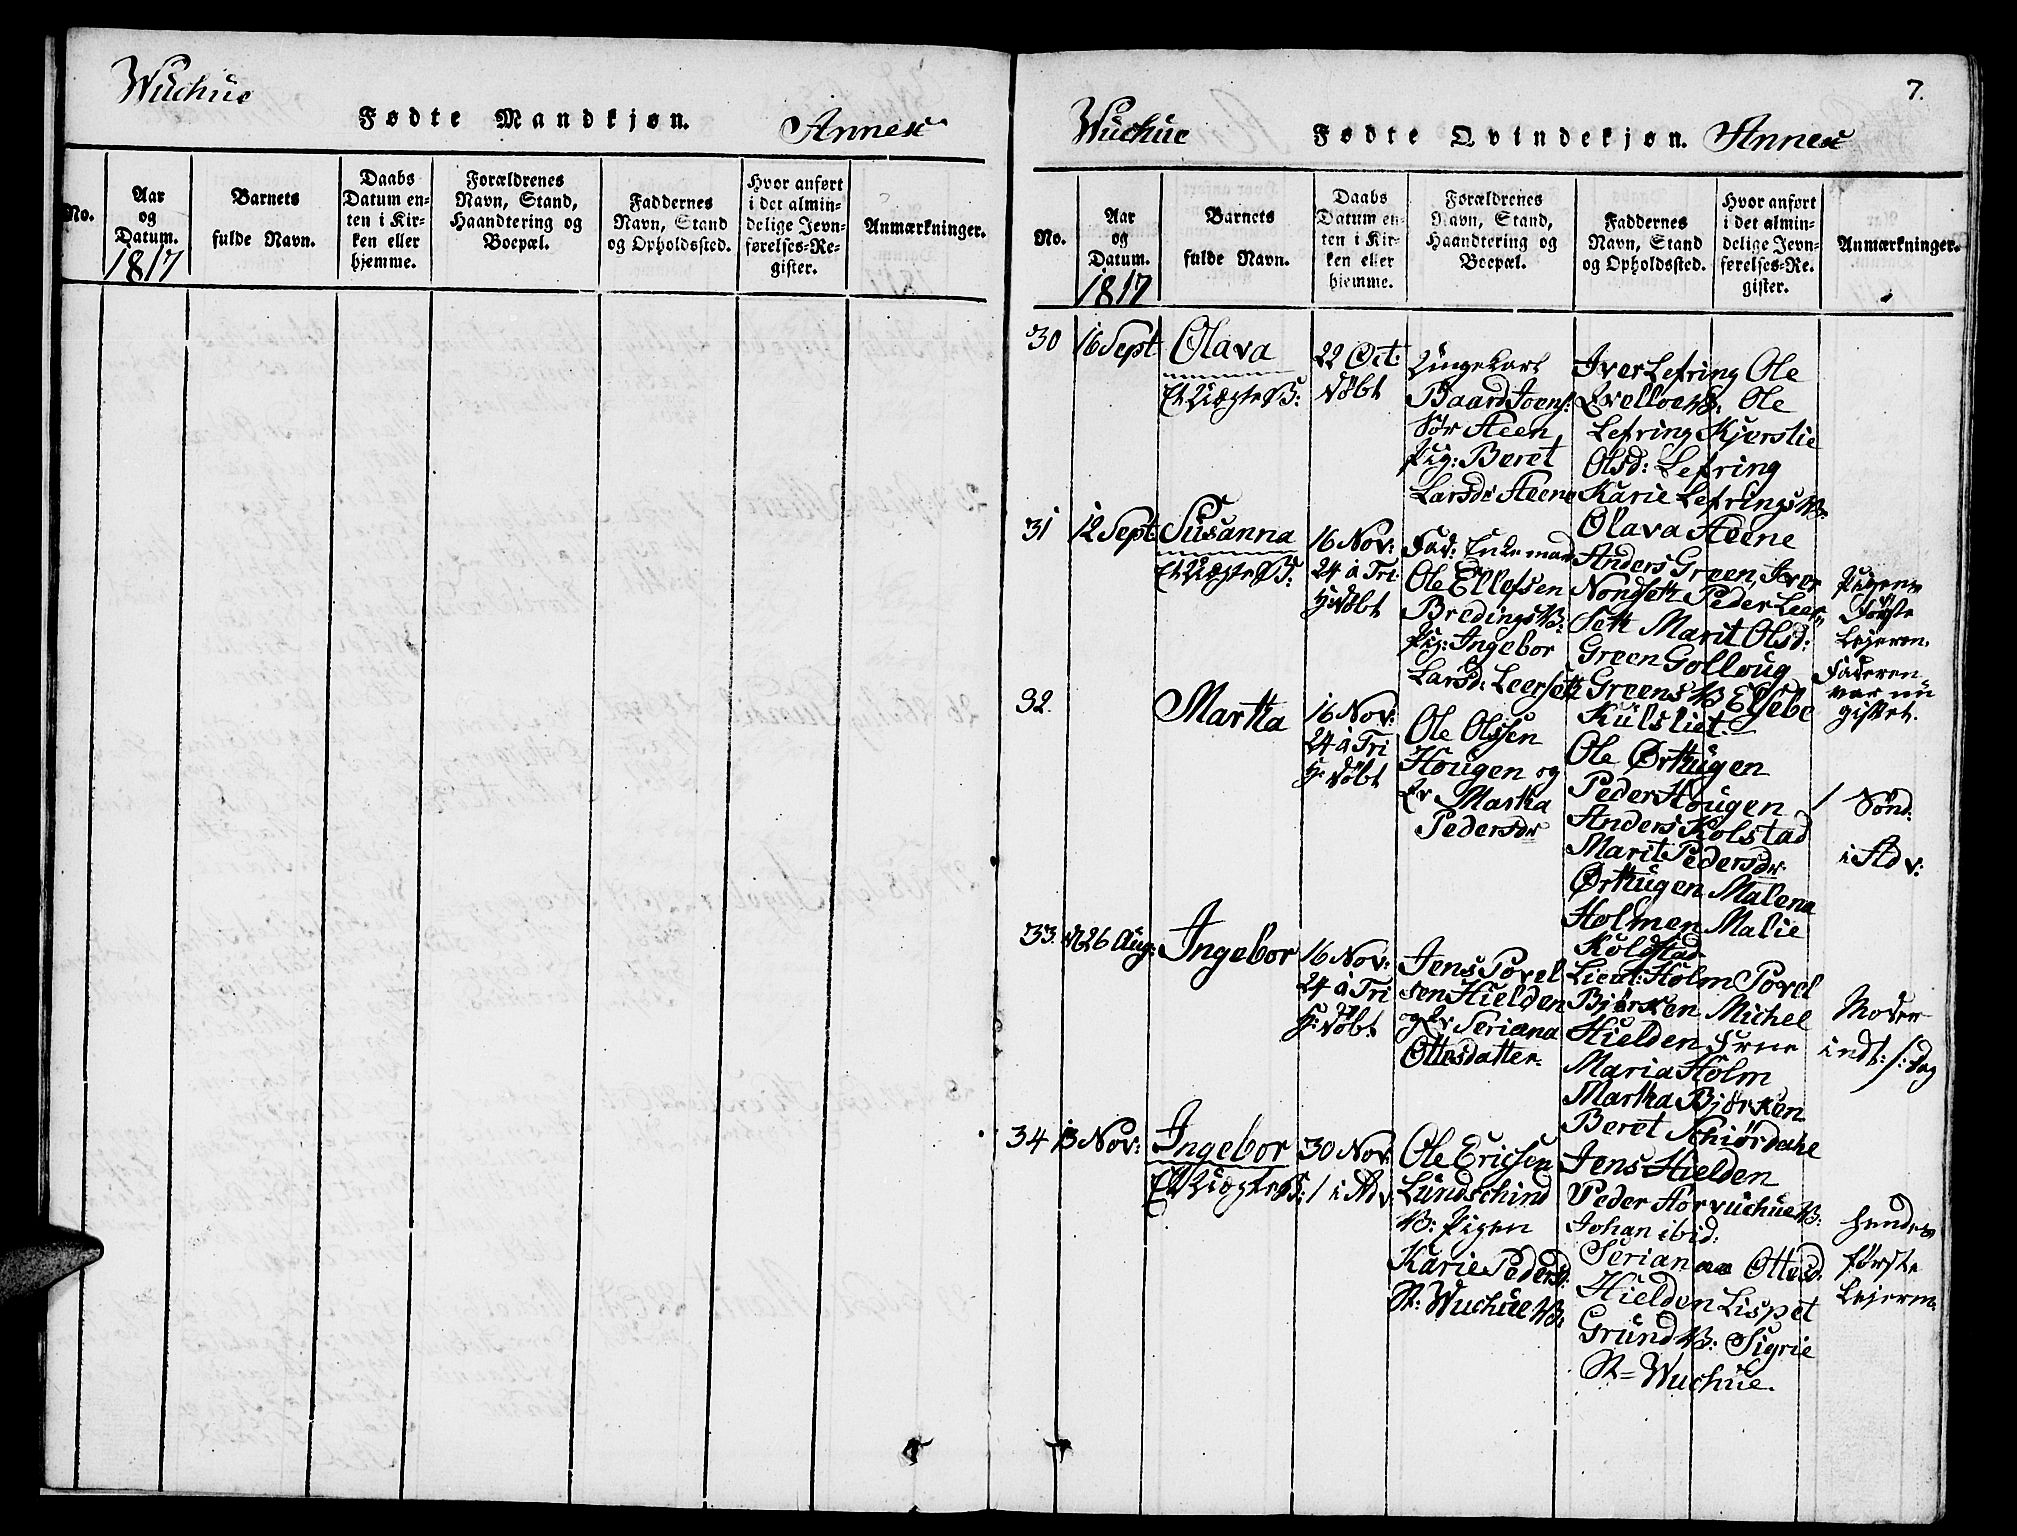 Wuchue
Fødte Mandkjøn.
Annex
No.
Aar
og
Datum.
1817
Barnets
fulde Navn.
Daabs
Datum en-
ten i Kir-
ken eller
hjemme.
Forældrenes
Navn, Stand,
Haandtering og
Boepæl.
Faddernes
Navn, Stand
og Opholdssted.
Hvor anført
i det almin-
delige Jevn-
førelses-Re-
gister.
Anmærkninger.
7.
Wuchue
Fødte Qvindekjøn.
Annex
No.
Aar
og
Datum.
1817
Barnets
fulde Navn.
Daabs
Datum en-
ten i Kir-
ken eller
hjemme.
Forældrenes
Navn, Stand,
Haandtering og
Boepæl.
Faddernes
Navn, Stand
og Opholdssted.
Hvor anført
i det almin-
delige Jevn-
førelses-Re-
gister.
Anmærkninger.
30
16 Sept
Olava
Et Uægte B:
22 Oct:
Døbt
Ungekarl
Baard Joens:
Sør Steen
Pig: Beret
Larsdr Steene
Iver Lefring Ole
Qvelloe W: Ole
Lefring Kjerstie
Olsd: Lefring
Karie Lefrings W:
Olava Steene
31
12 Sept:
Susanna
Et Uægte B:
16 Nov:
24 à Tri:
H: Døbt
Fad: Enkemand
Ole Ellefsen
Bredings W:
Pig: Ingebor
Larsd: Leerseth
Anders Green, Iver
Nondseth Peder Leer
Seth Marit Olsd:
Green Golloug
Greens W Elsebe
Kulsliet.
Pigens
Første
Lejerm.
Faderen
var nu
giftet.
32.
Martha
16 Nov:
24 à Tri
H: Døbt
Ole Olssen
Hougen og
Er Martha
Pedersdr
Ole Ørthugen
Peder Hougen
Anders Kolstad
Marit Pedersdr
Ørthugen Malena
Holmen Malie
Koldstad
/ Sønd:
i Adv:
33
26 Aug:
Ingebor
16 Nov:
24 à Tri
H: Døbt
Jens Povel
sen Hielden
og Er Seriana
Ottesdatter
Lieut: Holm Povel
Bjørken Michel
Hielden Frue
Maria Holm
Martha Bjørken
Beret Schiørdahle
Moder
indl: s: dag
34
13 Nov:
Ingebor
Et Uægte B:
30 Nov:
1 i Adv:
Ole Ericsen
Lundschind
W: Pigen
Karie Pedersd:
St: Wuchue W:
Jens Hielden
Peder Storvuchue W:
Johan ibid:
Seriana Ottesd:
Hielden Lispet
Grund W: Sigrie
St= Wuchue.
hendes
første
Lejerm: